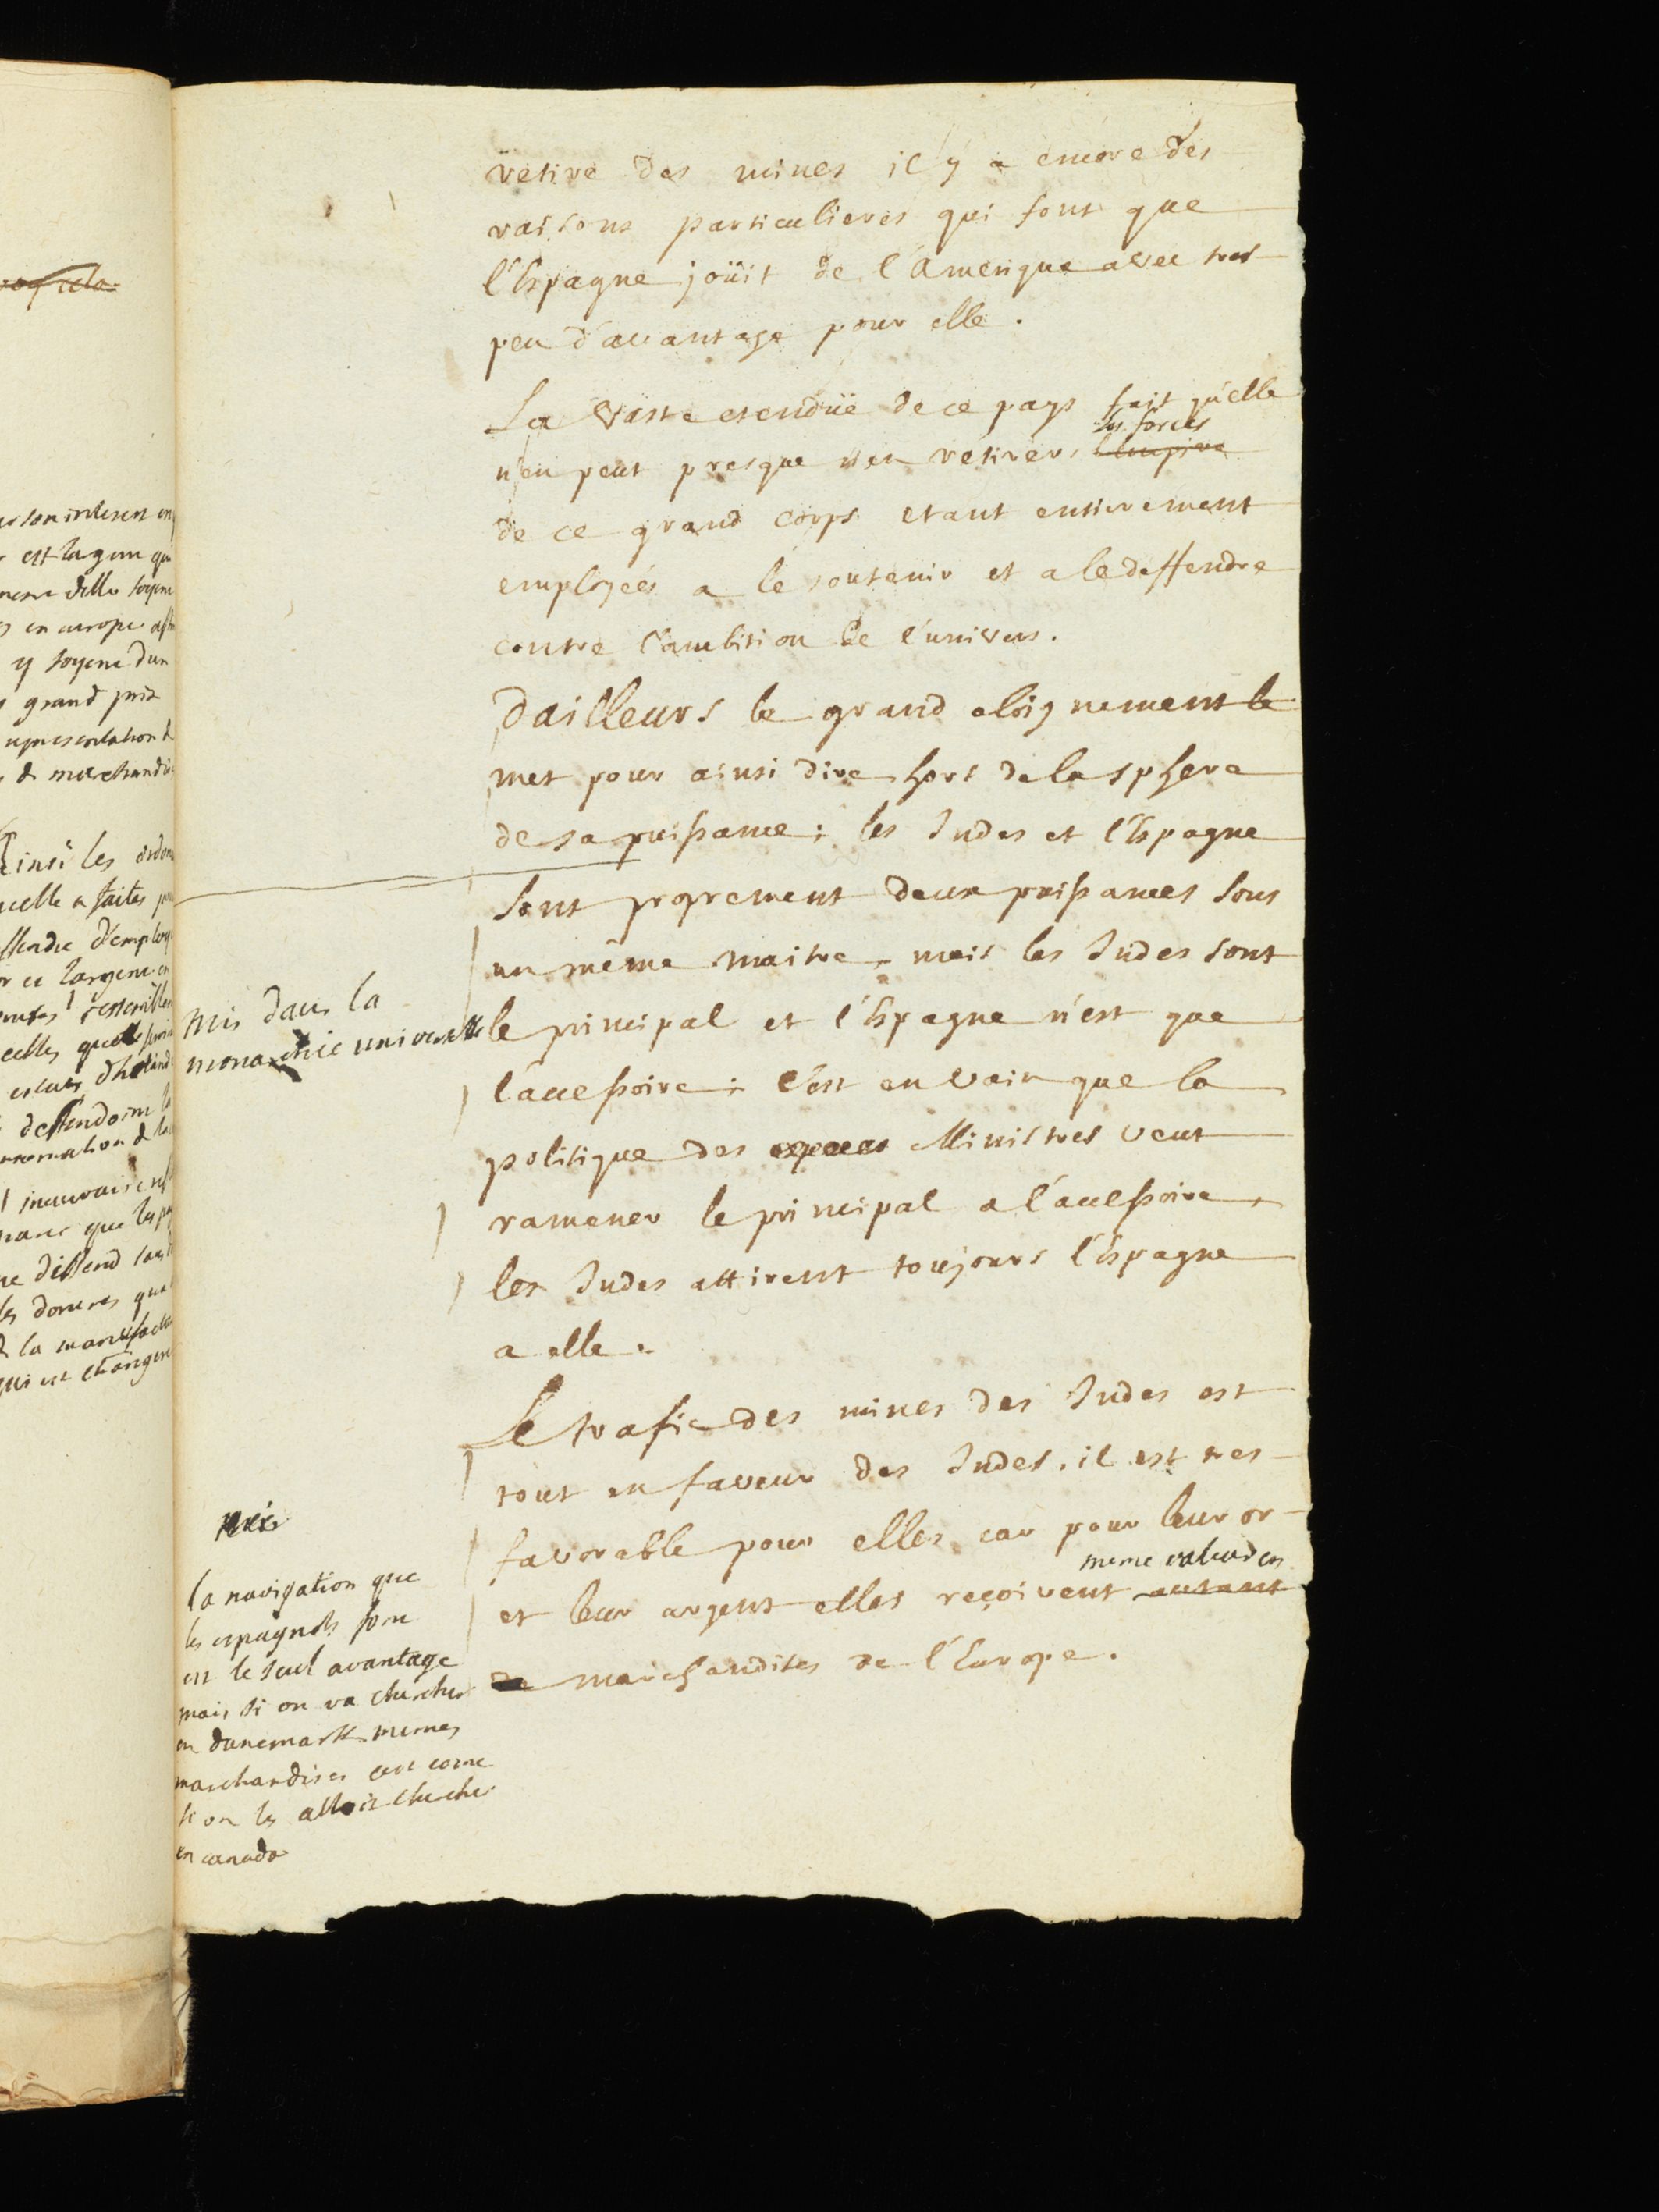 retire des mines il y a encore des
raisons particulieres qui font que
l'Espagne joüit de l'Amerique avec tres
peu d'avantage pour elle.
La vaste etenduë de ce pays fait qu'elle
les forces
n'en peut presque rien retirer, l'empire
de ce grand corps etant entierement
employées a le soutenir et a le deffendre
contre l'ambition de l'univers.
Dailleurs le grand eloignement le
met pour ainsi dire hors de la sphere
de sa puissance; les Indes et l'Espagne
sont proprement deux puissances sous
un même maitre, mais les Indes sont
le principal et l'Espagne n'est que
l'accessoire; c'est en vain que la
politique des Ministres veut
ramener le principal a l'accessoire,
les Indes attirent toujours l'Espagne
a elle.
Le trafic des mines des Indes est
tout en faveur des Indes, il est tres
favorable pour elles car pour leur or
meme valeur en
et leur argent elles reçoivent autant
de marchandises de l'Europe.
mis dans la
monarchie universelle
mis
la navigation que
les espagnols font
est le seul avantage
mais si on va chercher
en danemark memes
marchandises cest come
si on les alloit chercher
en canada
est largent qui
en europe
y soyent dun
grand prix
representation d
d marchandis
insi les ordon
uelle a faites
d'employ
largent en
celles quelle
deffendoint l
mauvais
que les
ne deffend
les dorures que
la manufactu
qui est etrangere